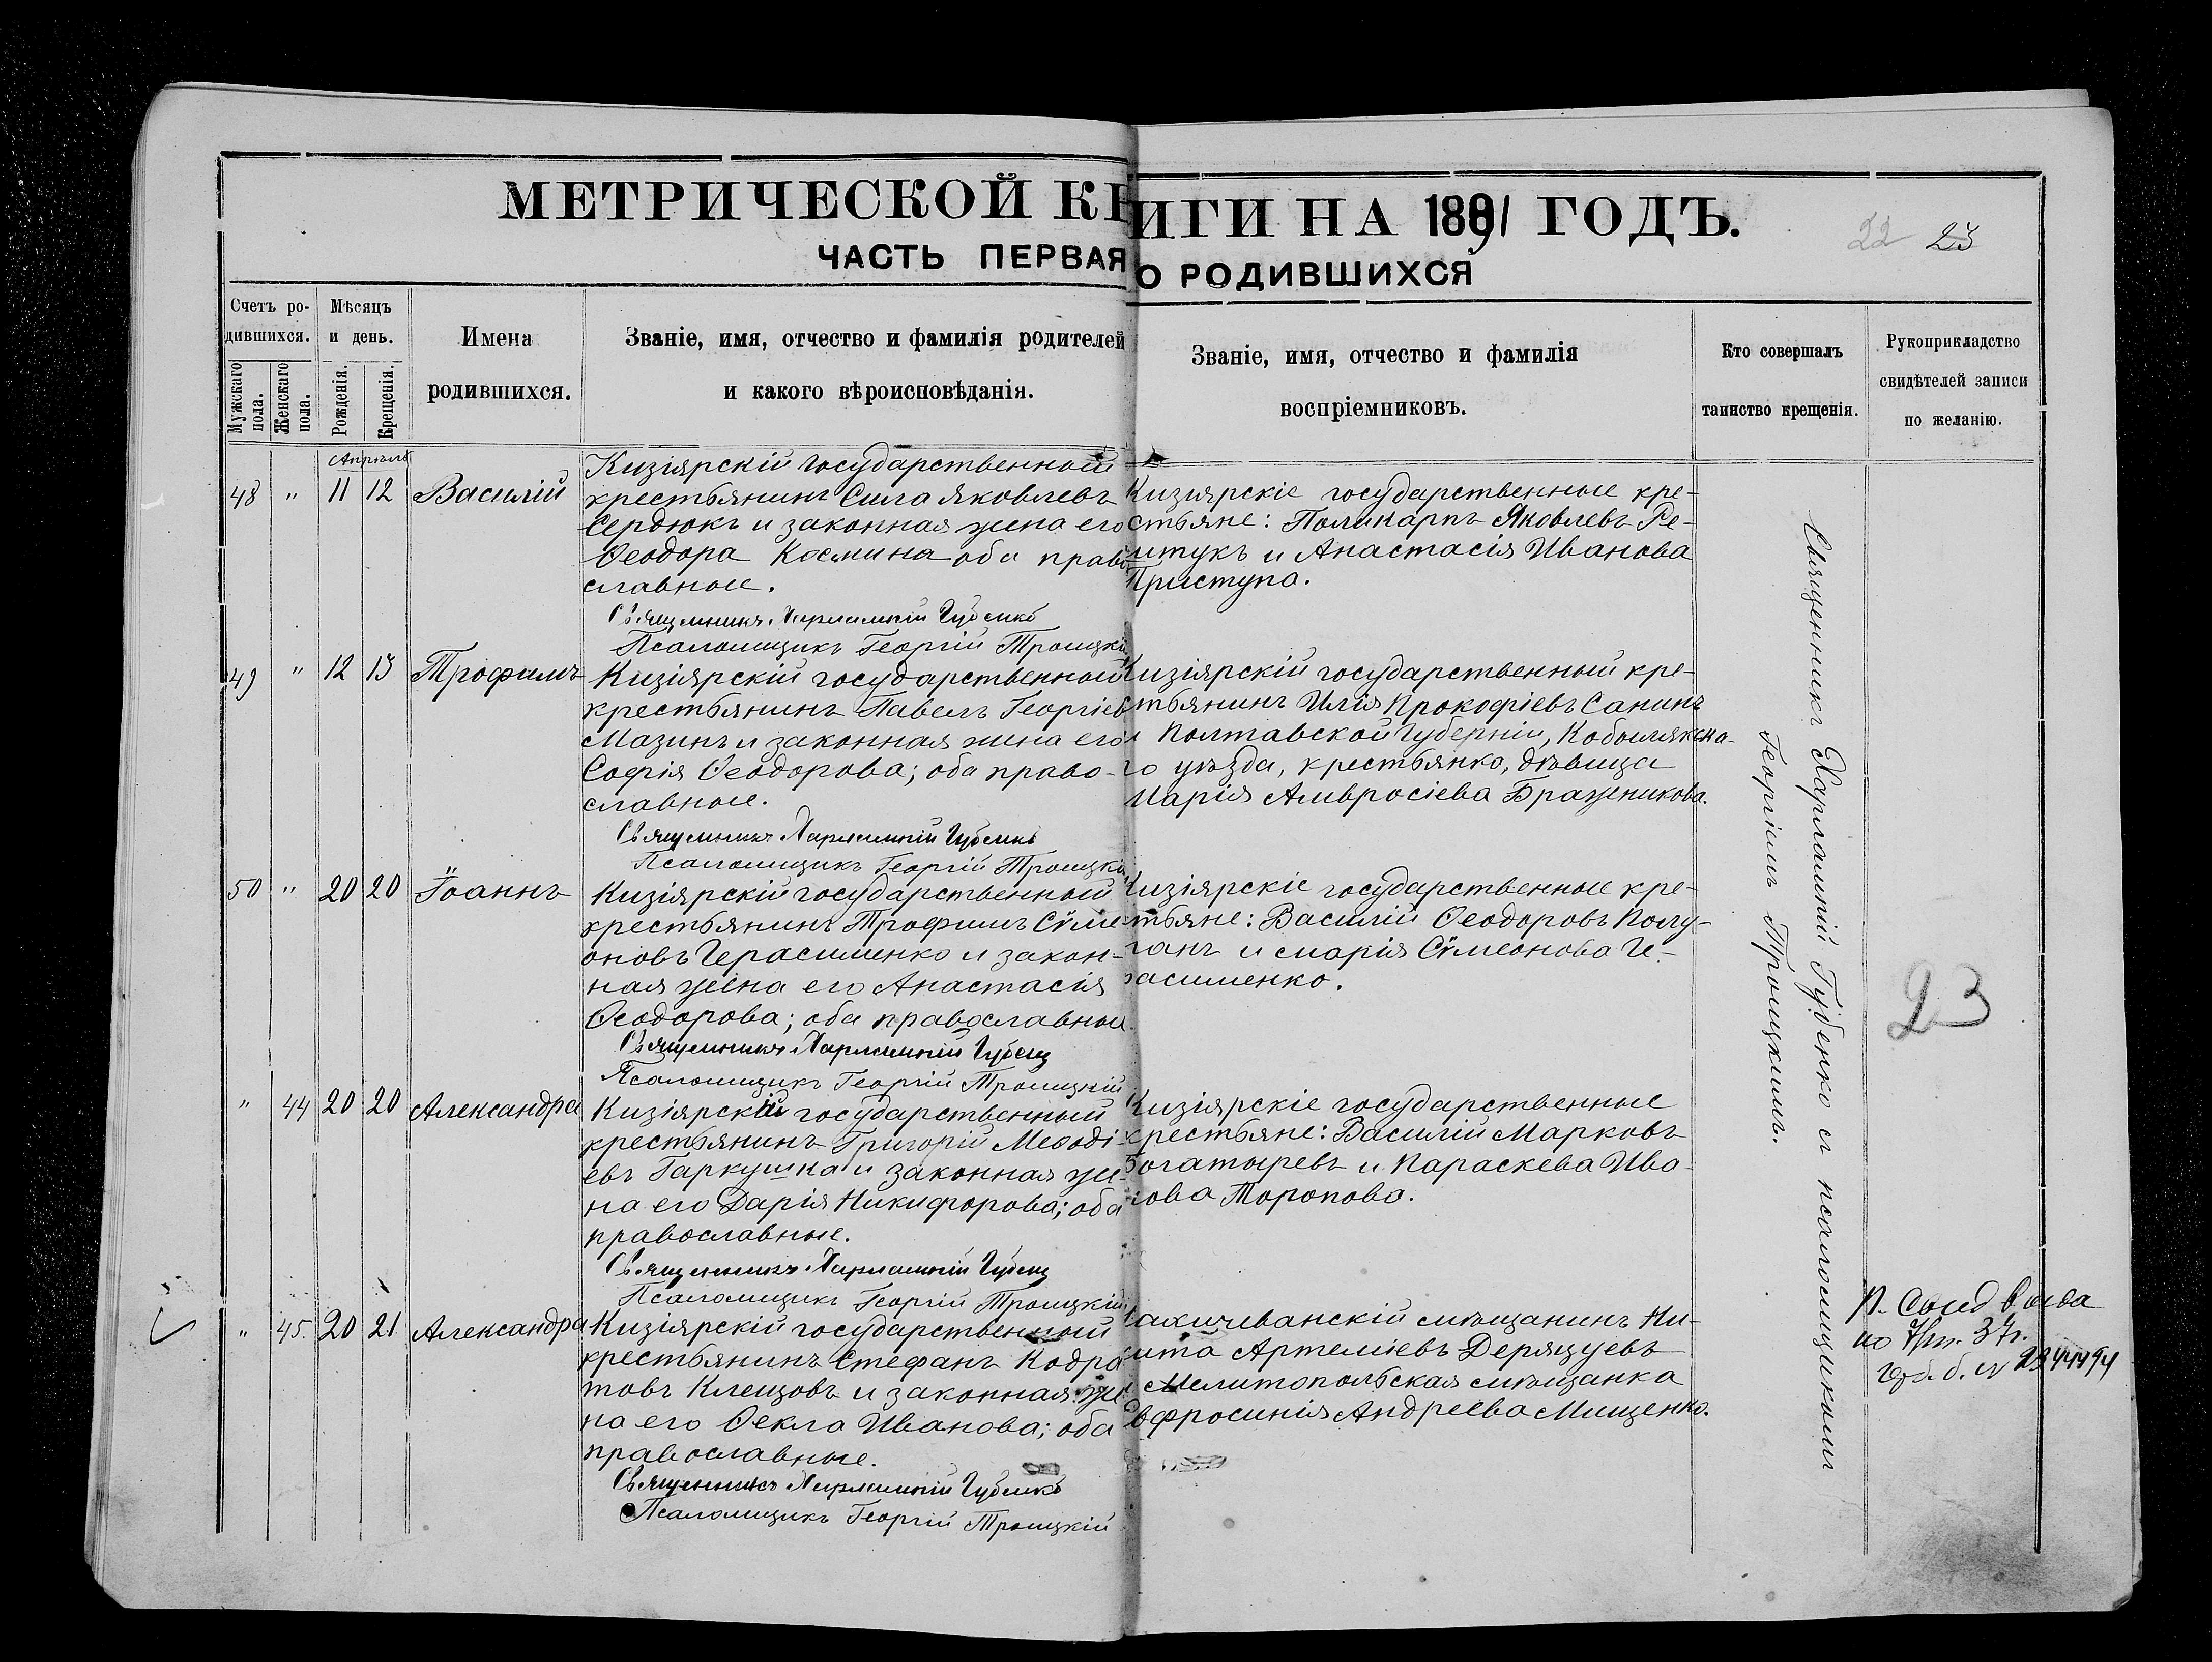 МЕТРИЧЕСКОЙ КНИГИ НА 1891 ГОДЪ.
22 23
ЧАСТЬ ПЕРВАЯ О РОДИВШИХСЯ
Счетъ ро-
дившихся.
Мужскаго пола.
Женскаго пола.
Мѣсяцъ
и день.
Рожденія.
Крещенія.
Имена
родившихся.
Званіе, имя, отчество и фамилія родителей
и какого вѣроисповѣданія.
Званіе, имя, отчество и фамилія
воспріемниковъ.
Кто совершалъ
таинство крещенія.
Рукоприкладство
свидѣтелей записи
по желанію.
Апрѣль
48 " 11 12 Василій
Кизіярскій государственный
крестьянинъ Сила Яковлевъ
Сердюкъ и законная жена его
Ѳеодора Космина оба право-
славные.
Священникъ Харлампій Губенко
Псаломщикъ Георгій Троицкій
Кизіярскіе государственные кре-
стьяне: Поликарпъ Яковлевъ Ре-
штукъ и Анастасія Иванова
Приступа.
49 " 12 13 Трофимъ
Кизіярскій государственный
крестьянинъ Павелъ Георгіев
Мазинъ и законная жена его
Софія Ѳеодорова; оба право-
славные.
Священникъ Харлампій Губенко
Псаломщикъ Георгій Троицкій
Кизіярскій государственный кре-
стьянинъ Илія Прокофіевъ Санинъ
и Полтавской Губерніи, Кобылякска-
го уѣзда, крестьянко, дѣвица
Марія Амвросіева Браженикова.
50 " 20 20 Іоаннъ
Кизіярскій государственный
крестьянинъ Трофимъ Сѵме-
оновъ Герасименко и закон-
ная жена его Анастасія
Ѳеодорова; оба православные.
Священникъ Харлампій Губенко
Псаломщикъ Георгій Троицкій
Кизіярскіе государственные кре-
стьяне: Василій Ѳеодоровъ Полу-
ганъ и Марія Сѵмеонова Ге-
расименко.
" 44 20 20 Александра
Кизіярскій государственный
крестьянинъ Григорій Меѳоді-
евъ Гаркушка и законная же-
на его Дарія Никифорова; оба
православные.
Священникъ Харлампій Губенко
Псаломщикъ Георгій Троицкій
Кизіярскіе государственные
крестьяне: Василій Марковъ
Богатыревъ и Параскева Ива-
нова Торопова.
" 45. 20 21 Александра
Кизіярскій государственный
крестьянинъ Стефанъ Кодра
товъ Клещовъ и законная же
на его Ѳекла Иванова; оба
православные.
Священникъ Харлампій Губенко
Псаломщикъ Георгій Троицкій
Нахичеванскій мѣщанинъ Ни-
кита Артеміевъ Дерягуевъ
и Мелитопольская мѣщанка
Евфросинія Андреева Мищенко.
Священникъ Харлампій Губенко и псаломщикомъ
Георгіемъ Троицкимъ.
23
37г.